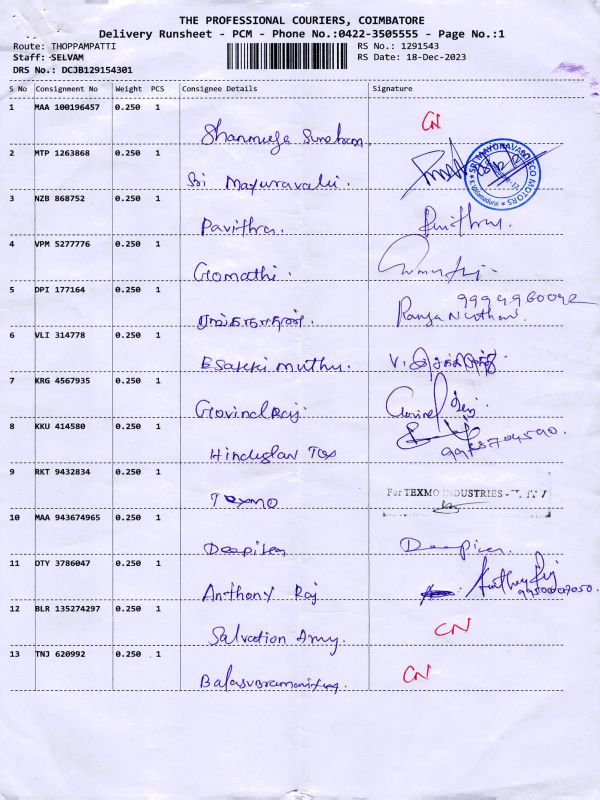 THE PROFESSIONAL COURIERS, COIMBATORE
Delivery Runsheet - PCM - Phone No.:0422-3505555 - Page No.:1
Route: THOPPAMPATTI
Staff: SELVAM
DRS No.: DCJB129154301
RS No.: 1291543
RS Date: 18-Dec-2023
S No Consignment No Weight PCS Consignee Details Signature
1 MAA 100196457 0.250 1
Shanmuga Sundram CN
2 MTP 1263868 0.250 1
Sri Mayuravalli.
SRI MAYURAVALLI ECO MOTORS
3 NZB 868752 0.250 1
Pavithra. Pavithra.
4 VPM 5277776 0.250 1
Gomathi.
5 DPI 177164 0.250 1
ரங்கநாதன். 9994960042
Ranganathan
6 VLI 314778 0.250 1
Esakki muthu. V. இசக்கிமுத்து.
7 KRG 4567935 0.250 1
Govind Raj. Govind Raj.
8 KKU 414580 0.250 1
Hindustan Tex
9 RKT 9432834 0.250 1
Texmo For TEXMO INDUSTRIES -
10 MAA 943674965 0.250 1
Deepika Deepika.
11 OTY 3786047 0.250 1
Anthony Raj Anthony Raj
12 BLR 135274297 0.250 1
Salvation Army. CN
13 TNJ 620992 0.250 1
Balasubramaniyam. CN